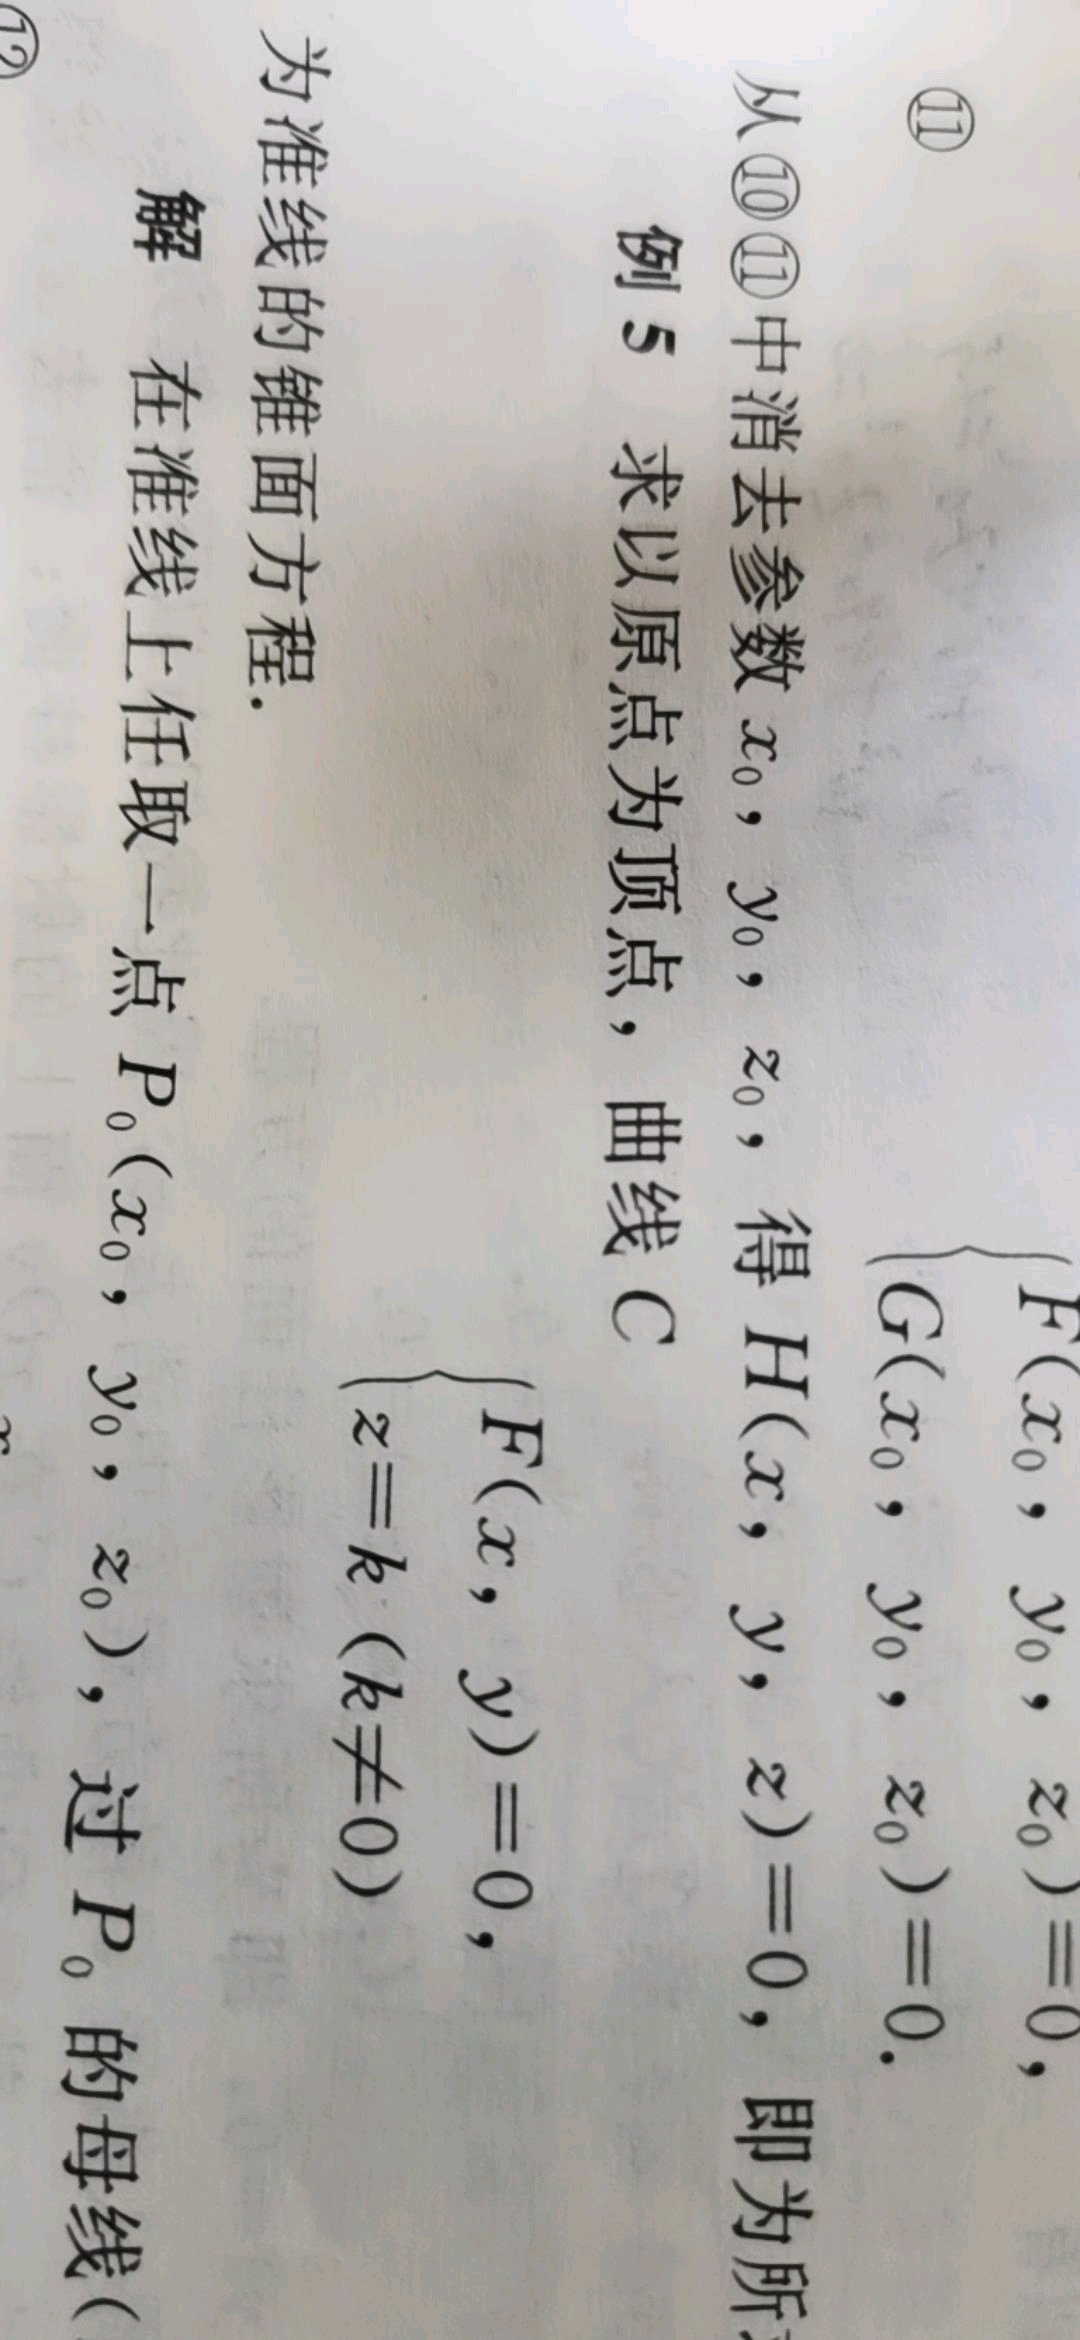 F(x₀, y₀, z₀)=0,
⑪
G(x₀, y₀, z₀)=0.
从⑩⑪中消去参数 x₀, y₀, z₀, 得 H(x, y, z)=0, 即为所
例 5 求以原点为顶点, 曲线 C
F(x, y)=0,
z=k (k≠0)
为准线的锥面方程.
解 在准线上任取一点 P₀(x₀, y₀, z₀), 过 P₀ 的母线(
⑫